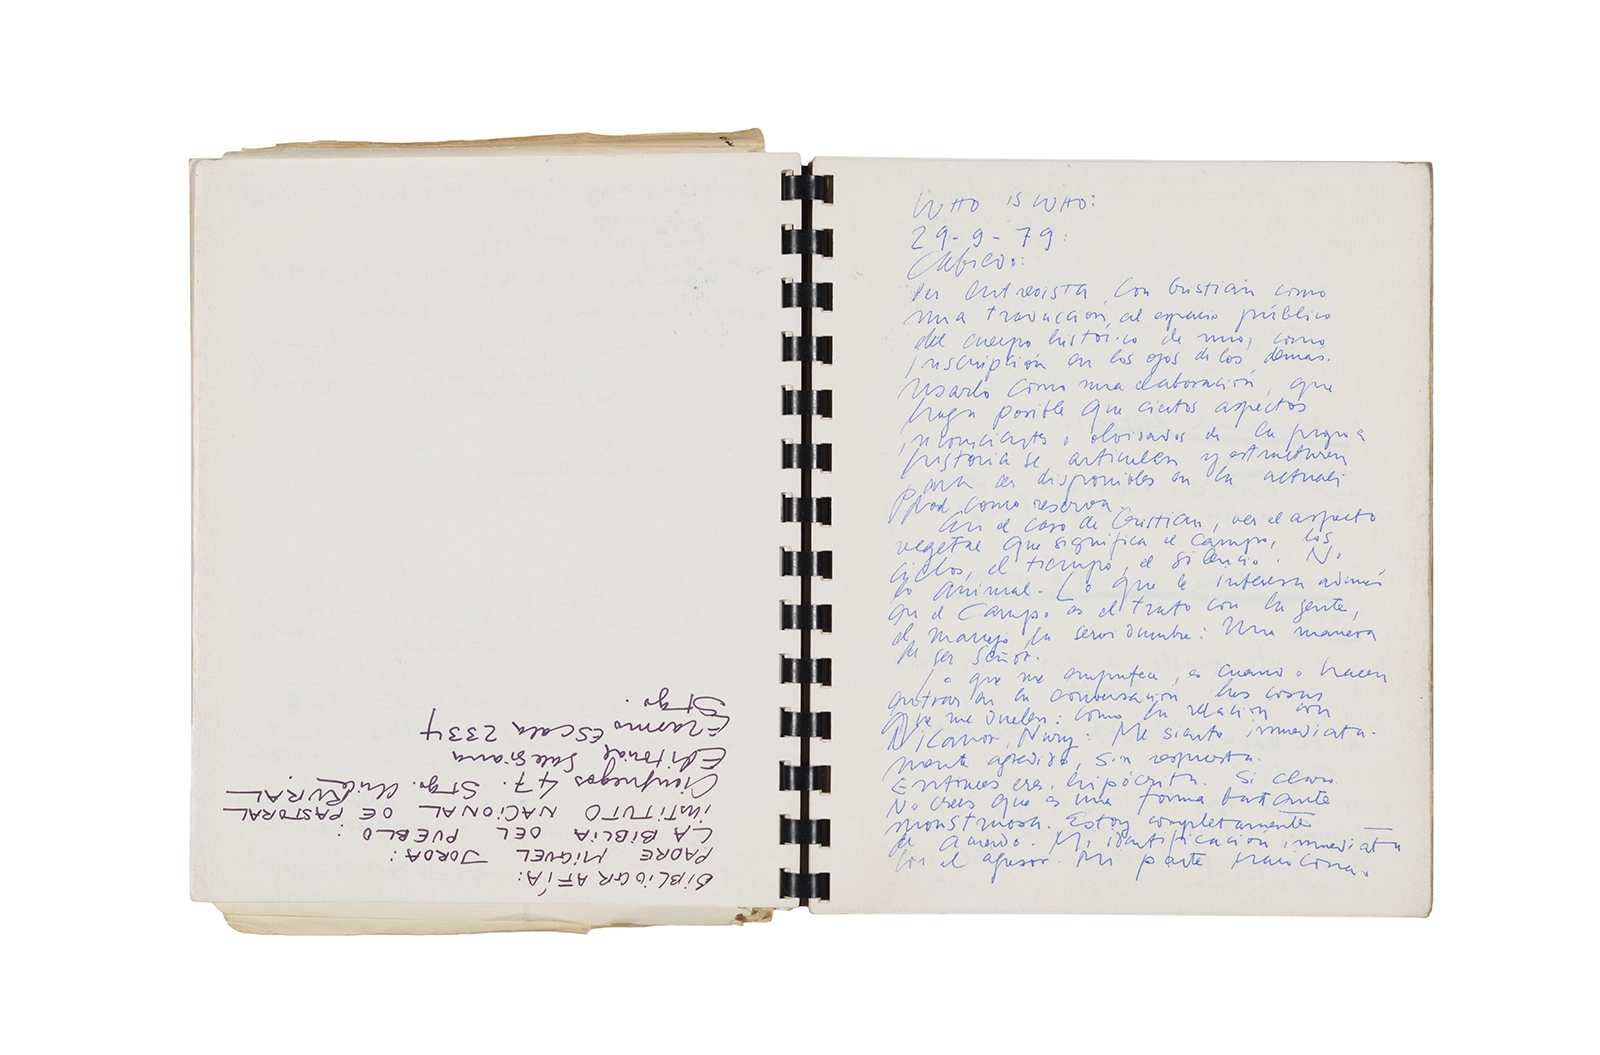 BIBLIOGRAFÍA:
PADRE MIGUEL JORDA:
LA BIBLIA DEL PUEBLO
INSTITUTO NACIONAL DE PASTORAL RURAL
Cienfuegos 47. Stgo. Chile.
Editorial Salesiana
Erasmo Escala 2334
Stgo.
WHO IS WHO:
29-9-79:
Ver entrevista, con Cristian como
una traducción, al espacio público
del cuerpo histórico de uno, como
inscripción en los ojos de los demás.
Usarlo como una elaboración, que
haga posible que ciertos aspectos
inconcients u olvidados de la propia
historia se articulen y estructuren
para ser disponibles en la actuali
dad como reserva.
En el caso de Cristian, ver el aspecto
vegetal que significa el campo, los
ciclos, el tiempo, el silencio. No
lo animal. Lo que le interesa además
en el campo es el trato con la gente,
el manejo, la servidumbre: Una manera
de ser Señor.
Lo que me emputea, es cuando hacen
entrar en la conversación las cosas
que me duelen: como la relación con
Nicanor, Nury: Me siento inmediata-
mente agredido, sin respuesta.
Entonces eres hipócrita. Si claro.
No crees que es una forma bastante
monstruosa. Estoy completamente
de acuerdo. Mi identificación inmediata
con el agresor. Mi parte